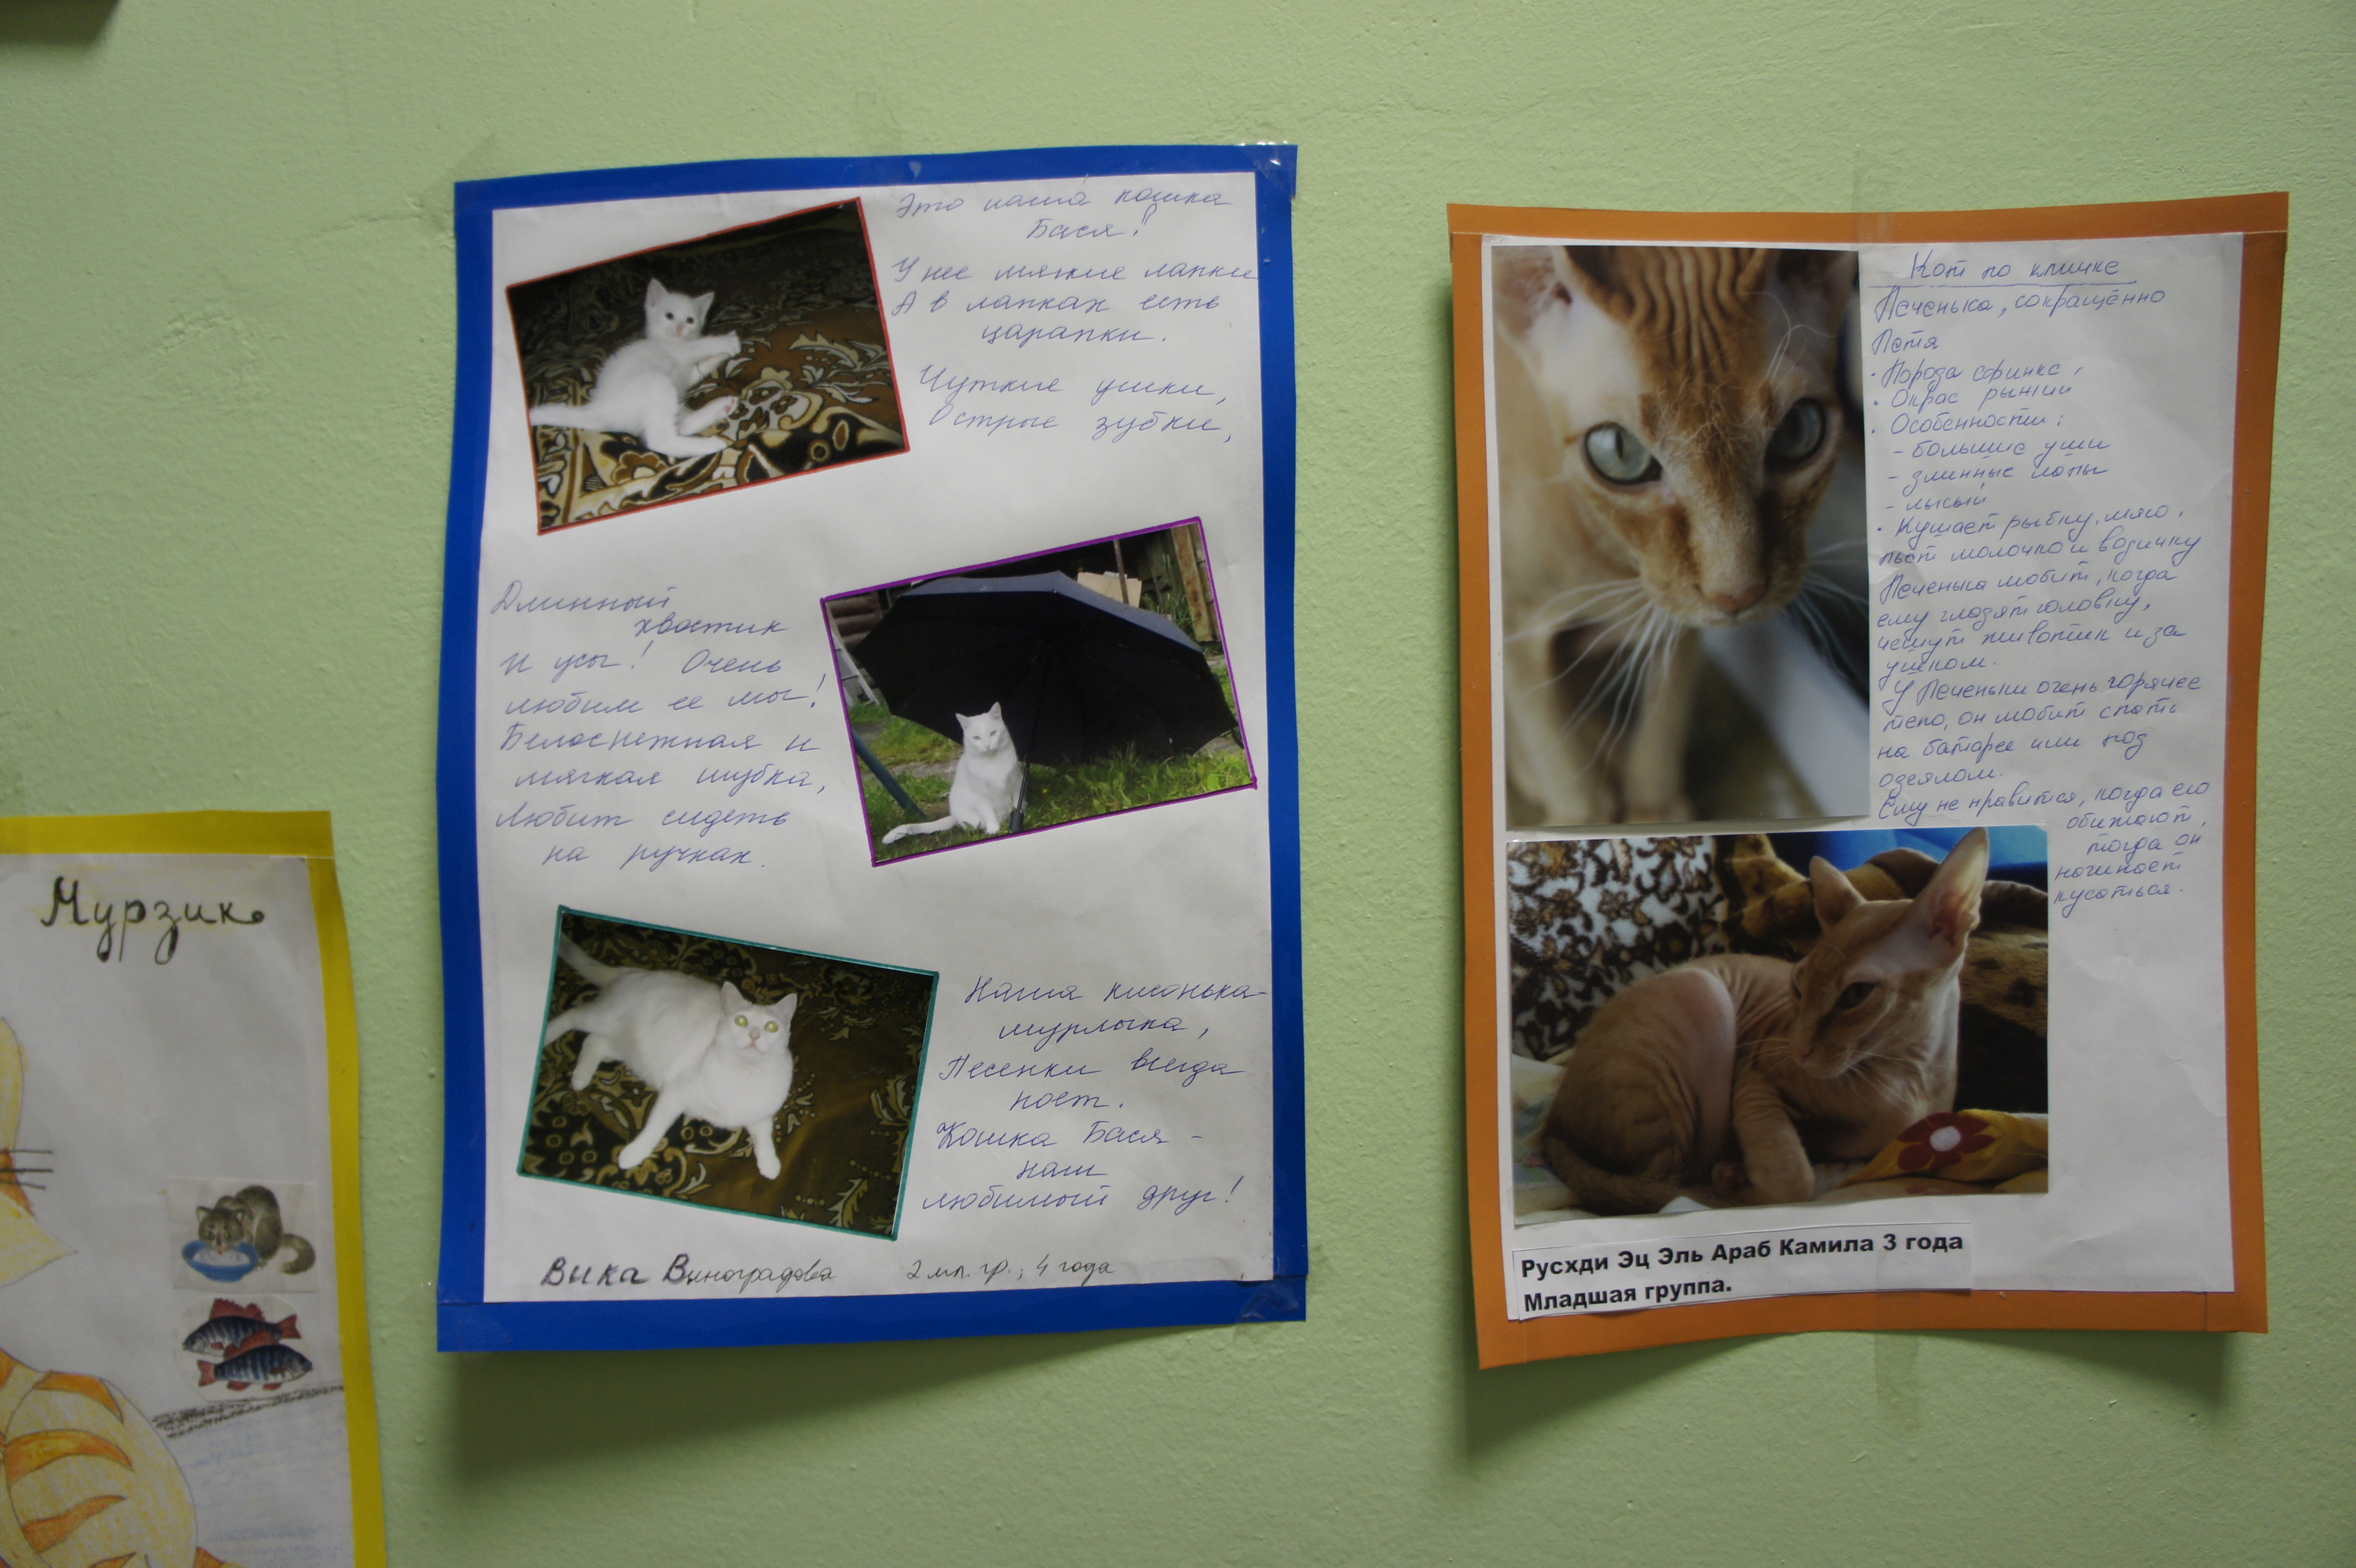 Мурзик
Это наша кошка
Бася!
У нее мягкие лапки
А в лапках есть
царапки.
Чуткие ушки,
Острые зубки,
Длинный
хвостик
и усы! Очень
любим ее мы!
Белоснежная и
мягкая шубка,
Любит сидеть
на ручках.
Наша кисонька-
мурлыка,
Песенки всегда
поет.
Кошка Бася -
наш
любимый друг!
Вика Виноградова 2 мл. гр.; 4 года
Кот по кличке
Печенька, сокращённо
Петя
· Порода сфинкс,
· Окрас рыжий
· Особенности:
- большие уши
- длинные лапы
- лысый
· Кушает рыбку, мясо,
пьёт молочко и водичку
Печенька любит, когда
ему гладят головку,
чешут животик и за
ушком.
У Печеньки очень горячее
тело, он любит спать
на батарее или под
одеялом.
Ему не нравится, когда его
обижают,
тогда он
начинает
кусаться.
Русхди Эц Эль Араб Камила 3 года
Младшая группа.